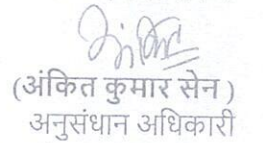 अंकित
(अंकित कुमार सेन)
अनुसंधान अधिकारी